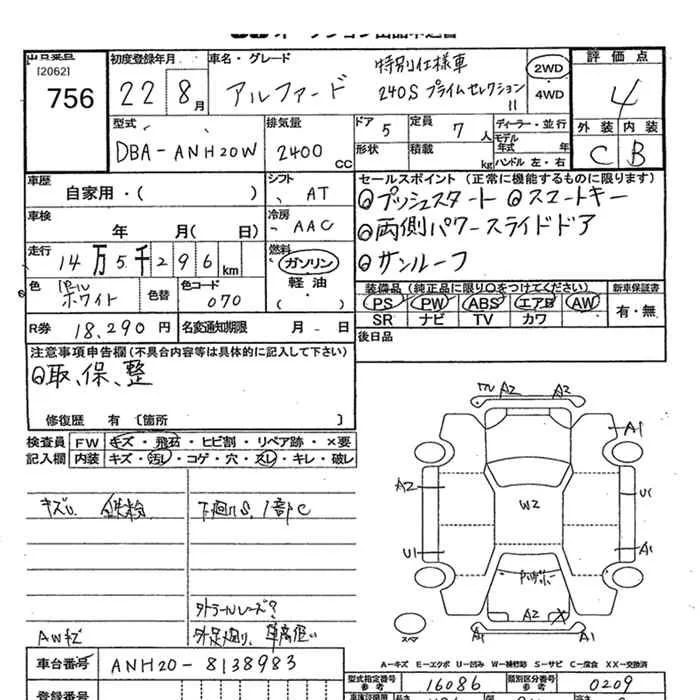 出品番号
[2062]
756
初度登録年月
22 8月
車名・グレード
アルファード
特別仕様車
240S プライムセレクションII
2WD
4WD
評価点
4
外装 内装
C B
型式
DBA-ANH20W
排気量
2400 cc
ドア 5
形状
定員 7人
積載 kg
ディーラー・並行
モデル年式 年
ハンドル 左・右
車歴
自家用・( )
シフト
AT
車検
年 月( 日)
冷房
AAC
走行
14万5千296km
燃料
ガソリン
軽油
・( )
色
パール
ホワイト
色替
色コード
070
R券 18,290円
名変通知期限 月 日
セールスポイント (正常に機能するものに限ります)
◎プッシュスタート ◎スマートキー
◎両側パワースライドドア
◎サンルーフ
装備品 (純正品に限り○をつけてください)
新車保証書
PS PW ABS エアB AW
SR ナビ TV カワ
有・無
後日品
注意事項申告欄(不具合内容等は具体的に記入して下さい)
◎取、保、整
修復歴 有 〔箇所 〕
検査員
記入欄
FW キズ・飛石・ヒビ割・リペア跡・×要
内装 キズ・汚レ・コゲ・穴・スレ・キレ・破レ
キズU 鉄粉
下廻りS、1部C
外足廻り、車高低い
AWキズ
A2 A2
A1
A2
U1
W2
U1
A1
A2 X
A1 A1
A-キズ E-エクボ U-凹み W-補修跡 S-サビ C-腐食 XX-交換済
車台番号 ANH20-8138983
型式指定番号
参考
16086
類別区分番号
参考
0209
登録番号